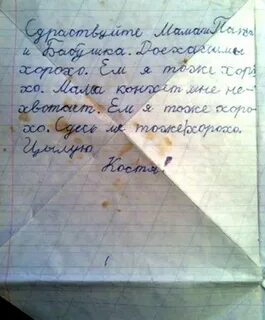 Сдраствуйте Мама и Папа
и Бабушка. Доехали мы
хорохо. Ем я тоже хор
хо. Мама конхет мне не-
хватает. Ем я тоже хоро-
хо. Сдесь мне тоже хорохо.
Цылую
Костя!